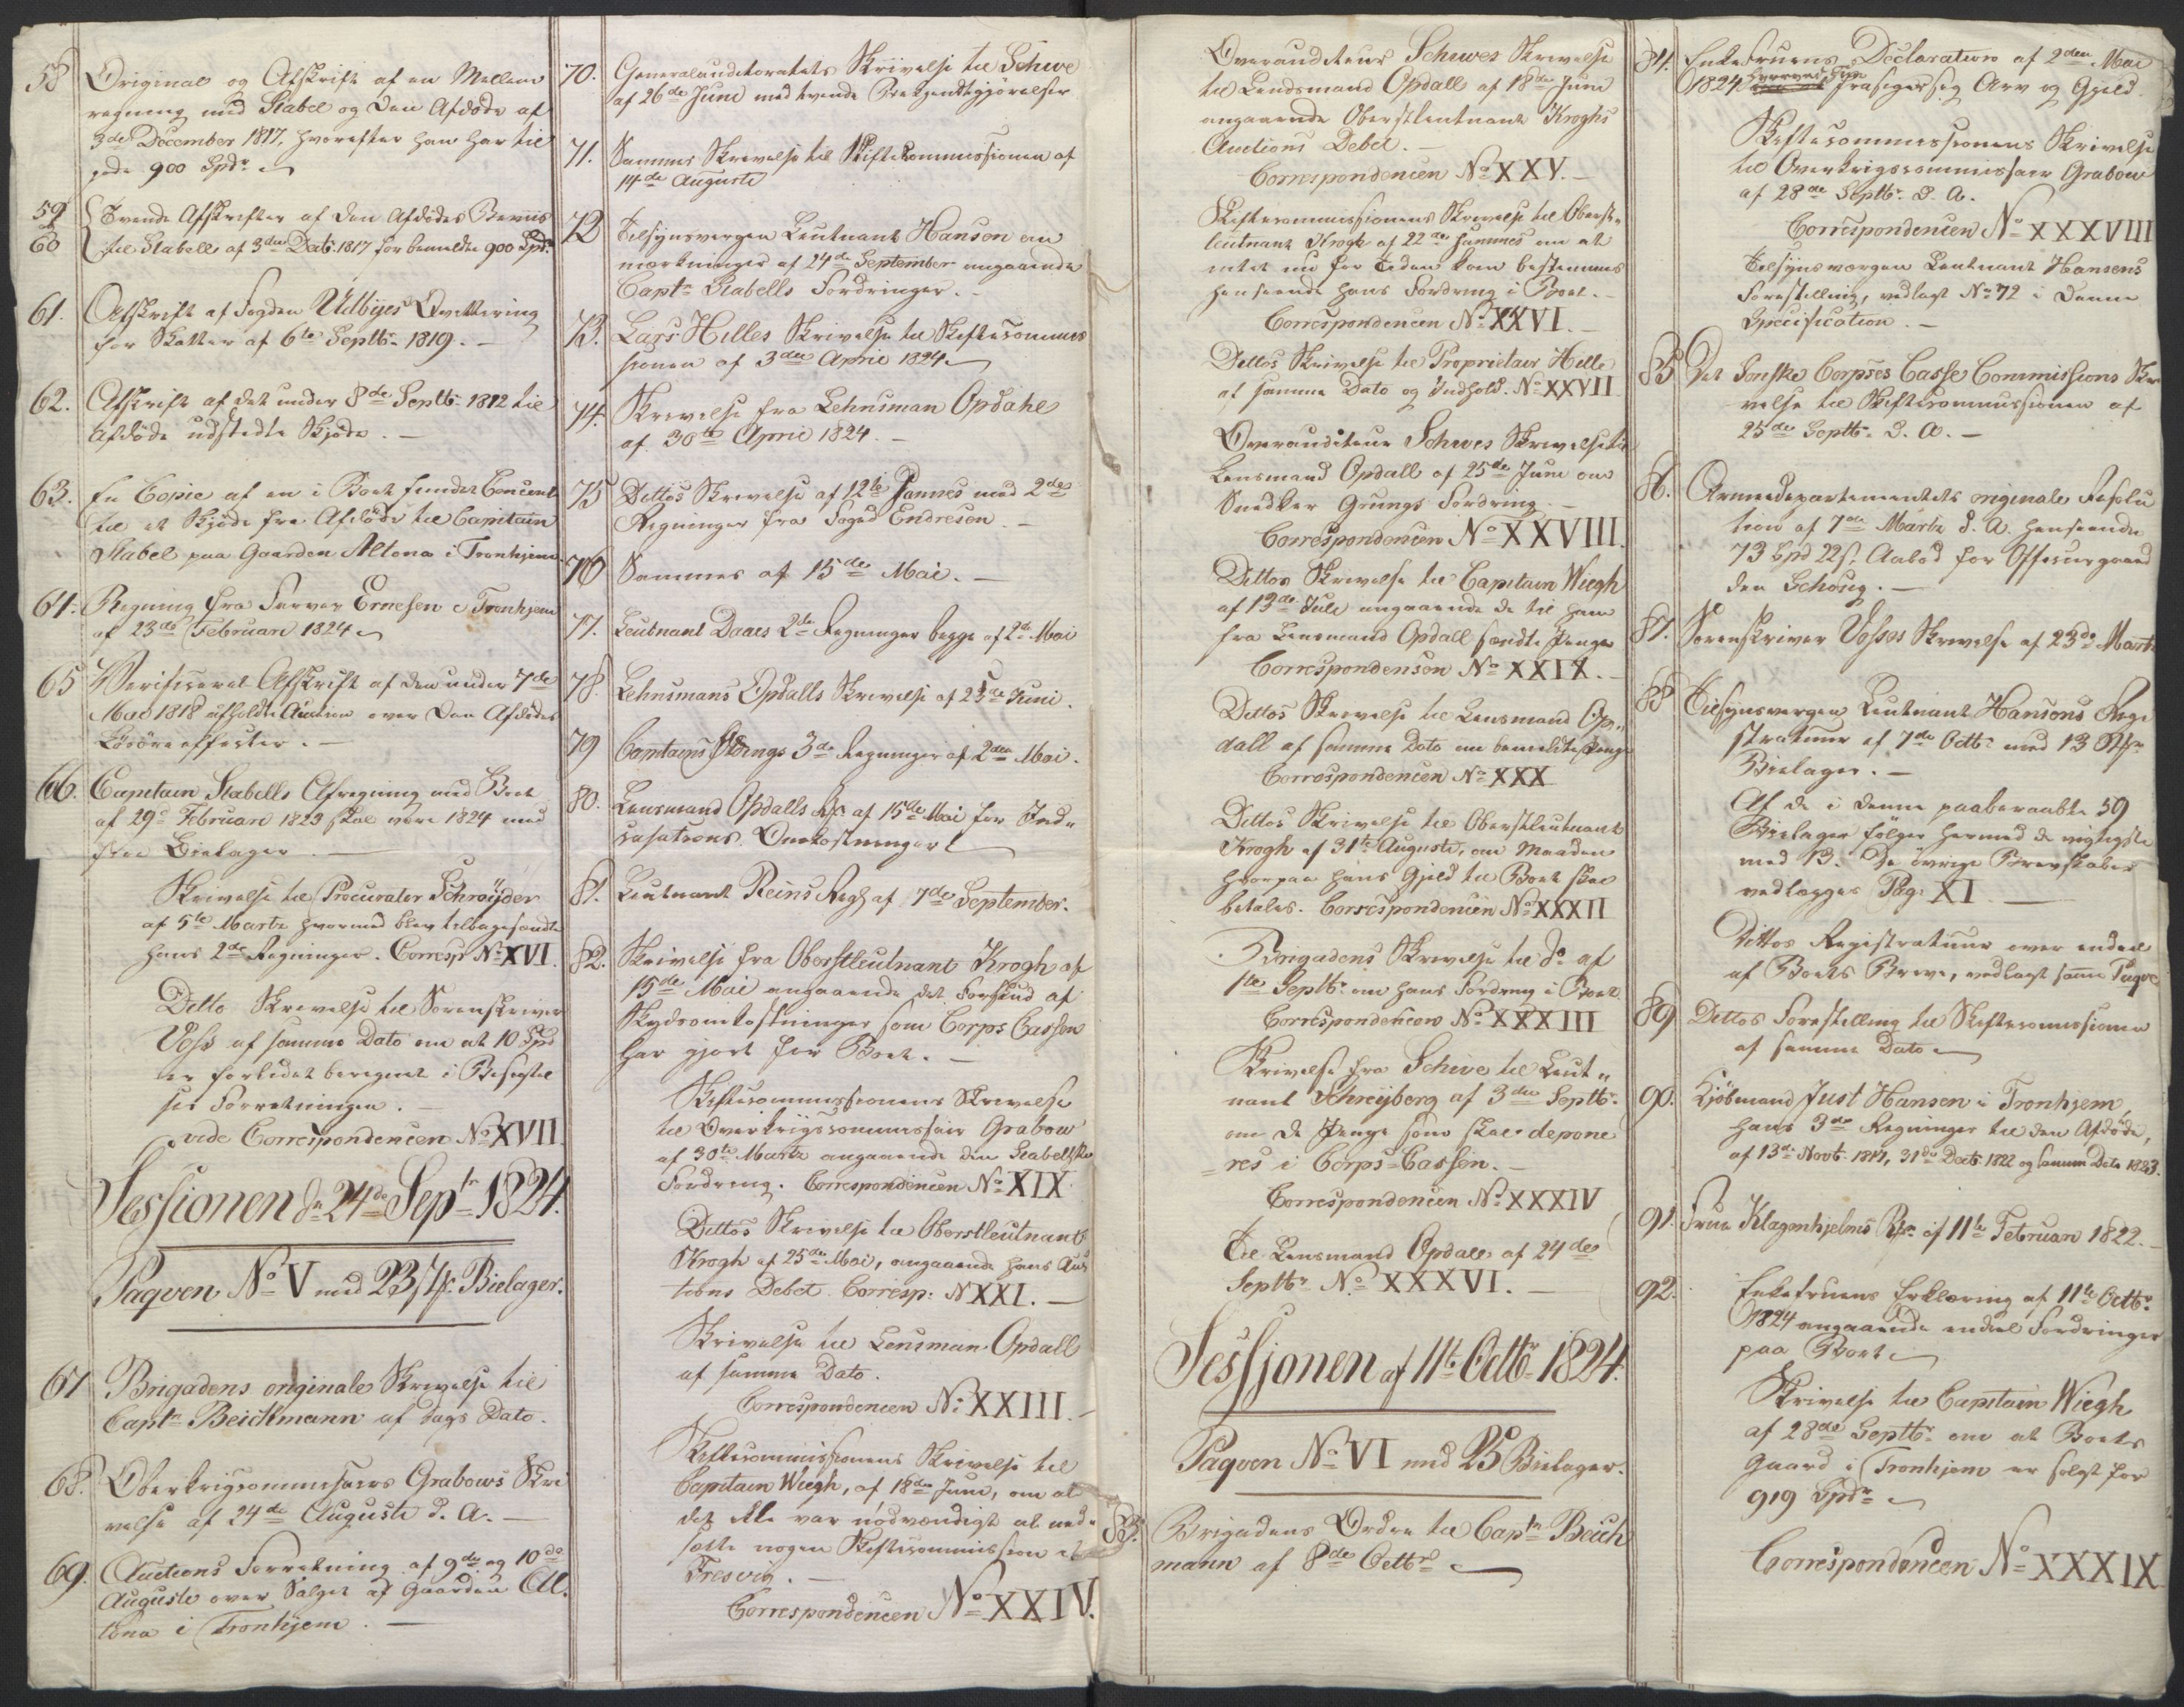 58 Original og Afskrift af en Mellem
regning med Stabel og den Afdøde af
3de December 1817, hvorefter han har til
gode 900 Spdr
59 & 60 Tvende Afskrifter af den Afdødes Beviis
til Stabell af 3die Decbr 1817 for bemeldte 900 Spdr
61. Afskrift af Fogden Udbyes Qvittering
for Skatter af 6te Septbr 1819. —
62. Afskrift af det under 8de Septbr 1812 til
Afdøde udstedte Skjøde. —
63. En Copie af en i Boet funden Concent
til et Skjøde fra Afdøde til Capitain
Stabel paa Gaarden Altona i Tronhjem
64. Regning fra Farver Ernesen i Tronhjem
af 23de Februari 1824
65 Verificeret Afskrift af den under 7de
Mai 1818 afholdte Auction over den Afdødes
Løsøreeffecter. —
66. Capitain Stabells Afregning med Boet
af 29de Februari 1823 skal være 1824 med
fire Bielager. —
Skrivelse til Procurator Schrøijder
af 5te Martz hvormed blev tilbagesendte
hans 2de Regninger. Corresp No XVI.
Ditto Skrivelse til Sorenskriver
Voss af samme Dato om at 10 Spd
er forlidet beregnet i Besigtel
ses Forretningen. —
vide Correspondencen No XVII.
Sessionen dn 24de Septr 1824.
Paqven No V med 23 Stk. Bielager.
67 Brigadens originale Skrivelse til
Captn Beichmann af dags Dato.
68. Oberkrigscommissairs Grabows Skri
velse af 24de Auguste d. A. —
69. Auctions Forretning af 9de og 10de
Auguste over Salget af Gaarden Al„
tona i Tronhjem. —
70. Generalauditoratets Skrivelse til Schive
af 26de Juni med tvende Bekjendtgjørelser
71. Sammes Skrivelse til Skiftekommissionen af
14de Auguste
72 Tilsynsvergen Leutnant Hanson an
mærkninger af 24de September angaaende
Captn Stabells Fordringer. —
73. Lars Hilles Skrivelse til Skiftecommis
sionen af 3die April 1824
74. Skrivelse fra Lehnsman Opdahl
af 30te April 1824. —
75 Dittos Skrivelse af 12te Sammes med 2de
Regninger fra Foged Endresen. —
76 Sammes af 15de Mai. —
77. Leutnant Daaes 2de Regninger begge af 2de Mai
78. Lehnsmans Opdalls Skrivelse af 25de Juni.
79 Capitains 3de Regninger af 2den Mai.
80. Lensmand Opdalls Rg af 15de Mai for Ind„
casations Omkostninger
81. Leutnant Reins Regg af 7de September.
82. Skrivelse fra Oberstleutnant Krogh af
15de Mai angaaende det Forskud af
Skydsomkostninger som Corps Cassen
har gjort for Boet. —
Skiftecommissionens Skrivelse
til Overkrigscommissair Grabow
af 30te Martz angaaende den Stabellske
Fordring. Correspondencen No XIX.
Dittos Skrivelse til Oberstleutnant
Krogh af 25de Mai, angaaende hans Auc
tions Debet. Corresp: N XXI. —
Skrivelse til Lensman Opdall
af samme Dato.
Correspondencen No XXIII. —
Skiftecommissionens Skrivelse til
Capitain Wiegh, af 18de Juni, om at
det ikke var nödvændigt at ned„
sætte nogen Skiftecommission i
Fresvig. —
Correspondencen No XXIV.
Overauditeur Schives Skrivelse
til Lendsmand Opdall af 18de Juni
angaaende Oberstleutnant Kroghs
Auctions Debet. —
Correspondencen No XXV. —
Skiftecommissionens Skrivelse til Oberst„
leutnant Krogh af 22de Sammes om at
intet nu for Tiden kan bestemmes
henseende hans Fordring i Boet. —
Correspondencen No XXVI. —
Dittos Skrivelse til Proprietair Hille
af samme Dato og Indhold. No XXVII
Overauditeur Schives Skrivelse til
Lensmand Opdall af 25de Juni om
Snedker Grungs Fordring —
Correspondencen No XXVIII.
Dittos Skrivelse til Capitain Wiegh
af 13de Juli angaaende de til ham
fra Lensmand Opdall sendte Penge
Correspondensen No XXIX. —
Dittos Skrivelse til Lensmand Op„
dall af samme Dato om bemeldte Penge
Correspondencen No XXX
Dittos Skrivelse til Oberstleutnant
Krogh af 31te Auguste, om Maaden
hvorpaa hans Gjeld til Boet skal
betales. Correspondencen No XXXII
Brigadens Skrivelse til do af
1te Septbr om hans Fordring i Boet
Correspondencen No XXXIII
Skrivelse fra Schive til Leut„
nant Schreyberg af 3die Septbr
om de Penge som skal depone
res i Corps-Cassen. —
Correspondencen No XXXIV
Til Lensmand Opdall af 24de
Septbr No XXXVI. —
Sessjonen af 11te Octbr 1824.
Paqven No VI med 25 Bielager.
83. Brigadens Ordre til Captn Beich
mann af 8de Octbr
84. Enkefruens Declaration af 2den Mai
1824 hvorved hun frasiger sig Arv og Gjeld.
Skiftecommissionens Skrivelse
til Overkrigscommissair Grabow
af 28de Septbr d. A.
Correspondencen No XXXVIII
Tilsynsvergen Leutnant Hansens
Forestilling, vedlagt No 72 i denne
Specification. —
85 Det Sonske Corpses Casse Commissions Skri
velse til Skiftecommissionen af
25de Septbr d. A. —
86. Armeedepartementets originale Resolu
tion af 7de Martz d. A. henseende
73 Spd 22 s. Aabod for Officeergaard
den Schoug. —
87. Sorenskriver Vosses Skrivelse af 23de Martz
88 Tilsynsvergen Leutnant Hansons Regi
stratuur af 7de Octbr med 13
Bielager. —
Af de i denne paaberaabte 59
Bielager følger hermed de vigtigste
med 13. De övrige Brevskaber
vedlægges Pag. XI. —
Dittos Registratuur over endeel
af Boets Breve, vedlagt samme Paqve
89 Dittos Forestilling til Skiftecomissionen
af samme Dato
90. Kjöbmand Just Hansen i Tronhjem,
hans 3de Regninger til den Afdøde,
af 13de Novbr 1817, 31de Decbr 1822 og samme Dato 1823.
91. Frue Klagenhjelms Rg af 11te Februari 1822. —
92. Enkefruens Erklæring af 11te Octbr
1824 angaaende endeel Fordringer
paa Boet
Skrivelse til Capitain Wiegh
af 28de Septbr om at Boets
Gaard i Tronhjem er solgt for
919 Spdr
Correspondencen No XXXIX